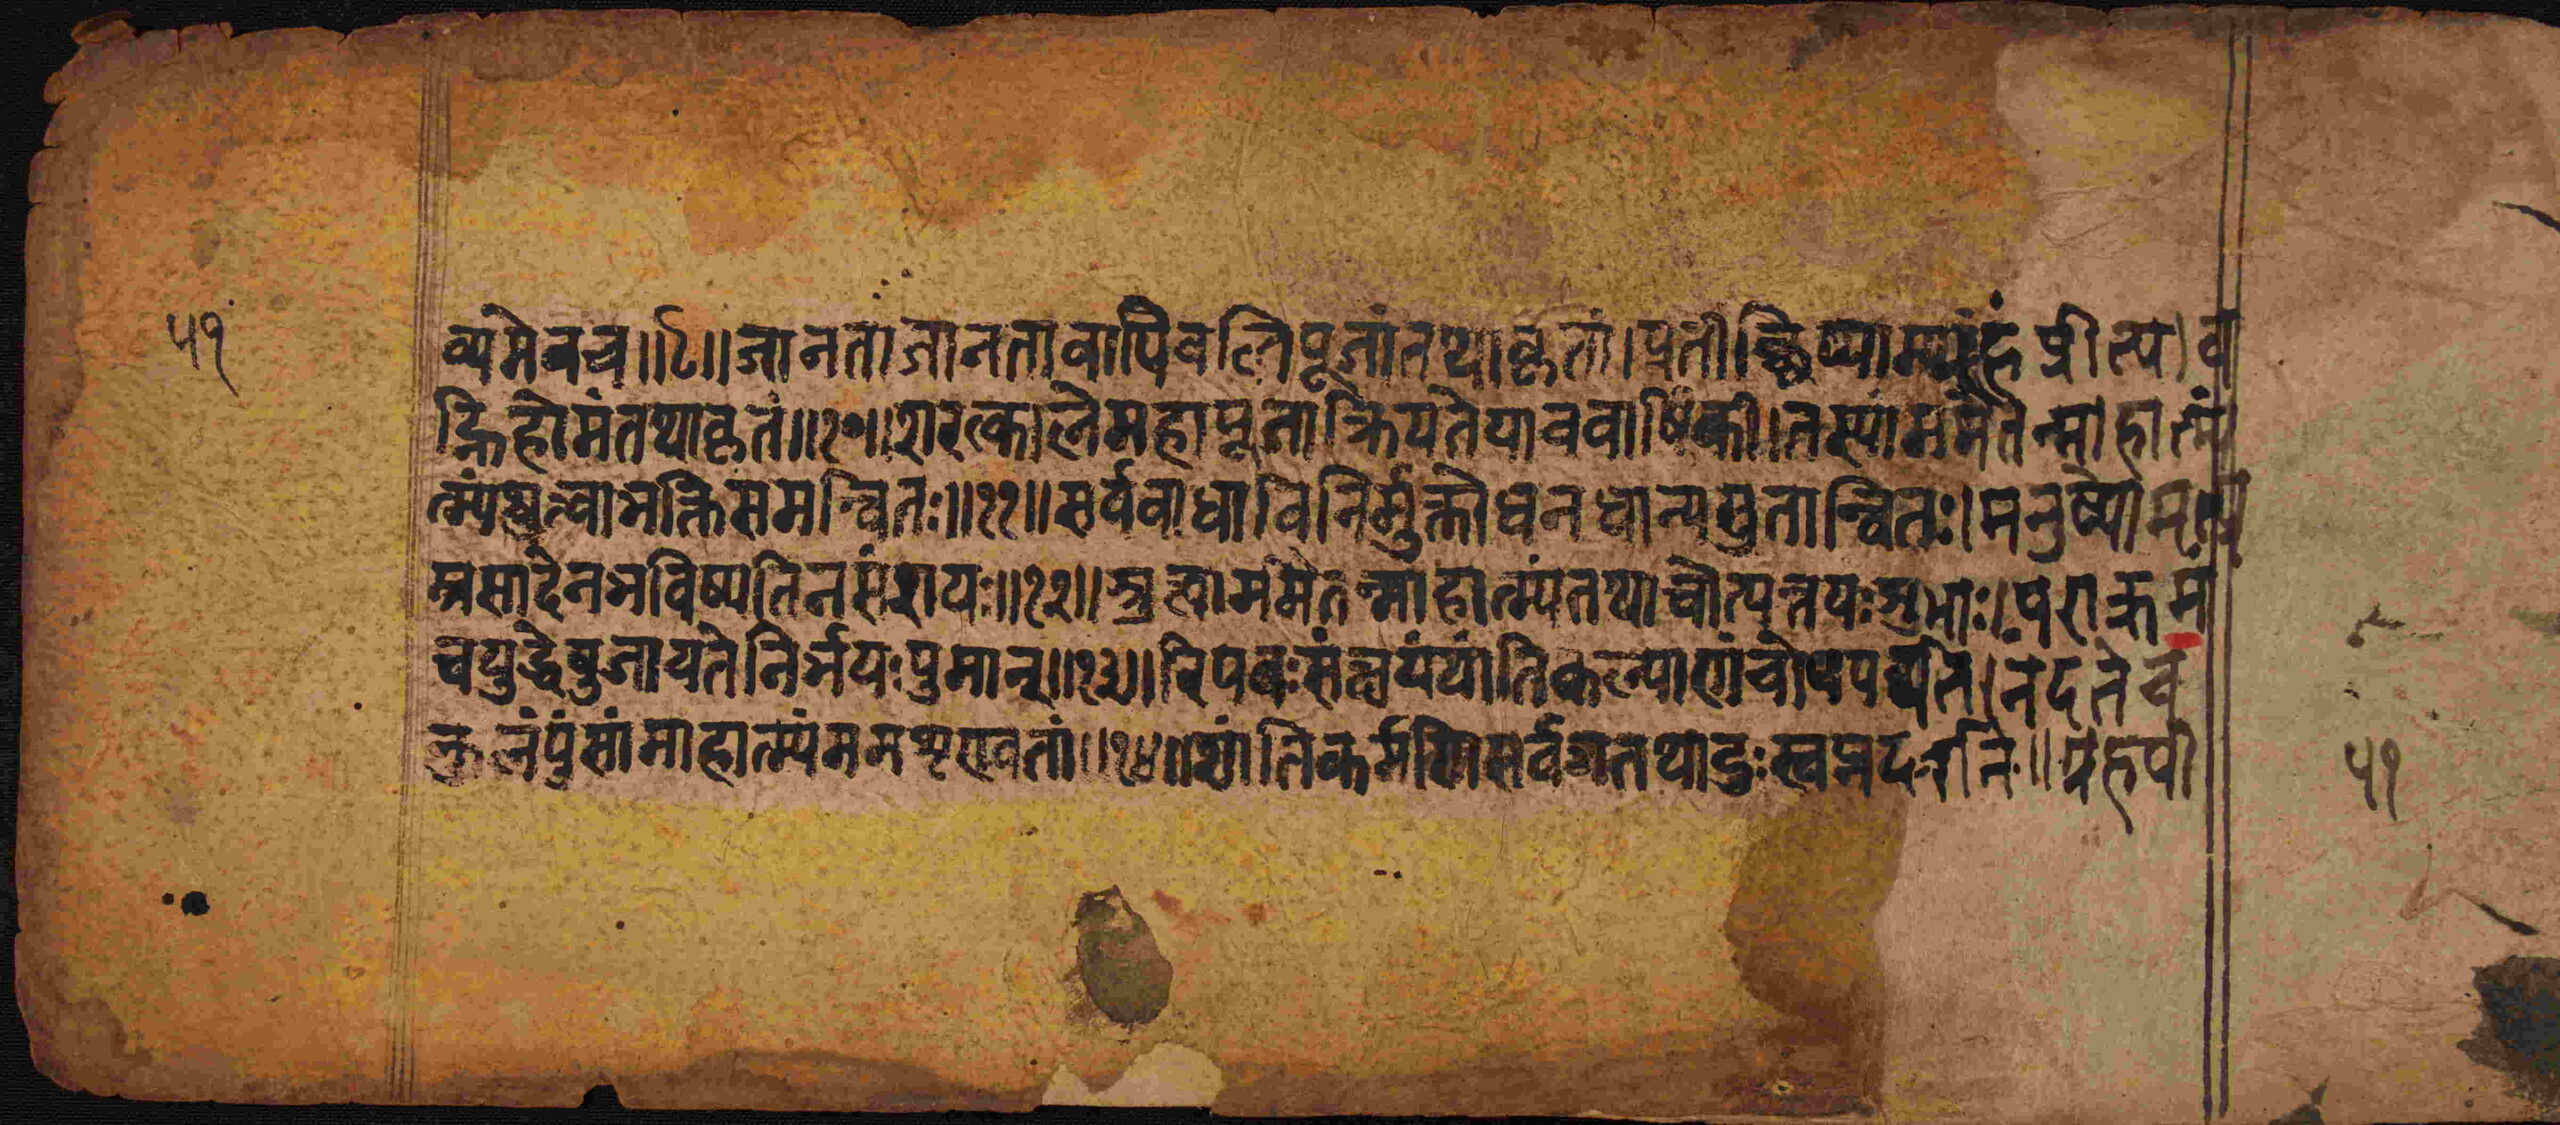 ५१
व्यमेवच॥९॥जानताजानतावापिवलिपूजांतथाकृतां।प्रतीच्छिष्याम्यहंप्रीत्याव
ह्निहोमंतथाकृतं॥१०॥शरत्कालेमहापूजाक्रियतेयाचवार्षिकी।तस्यांममैतन्माहात्म्यं
त्म्यंश्रुत्वाभक्तिसमन्वितः॥११॥सर्ववाधाविनिर्मुक्तोधनधान्यसुतान्वितः।मनुष्योमत्प्र
प्रसादेनभविष्यतिनसंशयः॥१२॥श्रुत्वाममैतन्माहात्म्यंतथाचोत्पत्तयःशुभाः।पराक्रमं
चयुद्धेषुजायतेनिर्भयःपुमान्॥१३॥रिपवःसंक्षयंयांतिकल्याणंचोपपद्यते।नंदतेच
कुलंपुंसांमाहात्म्यंममशृण्वतां॥१४॥शांतिकर्मणिसर्वत्रतथादुःस्वप्नदर्शने॥ग्रहपी
५१